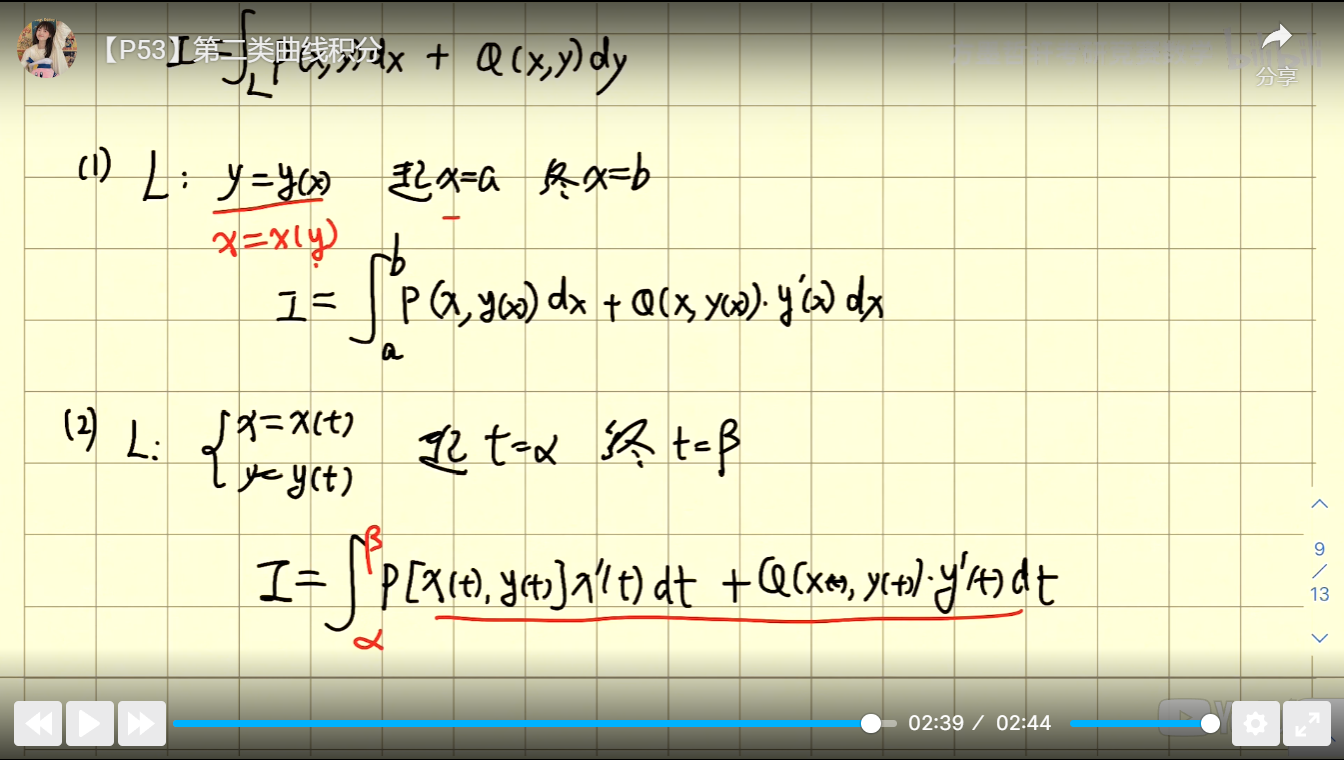 【P53】第二类曲线积分
I = ∫_L P(x,y)dx + Q(x,y)dy
分享
(1) L: y=y(x) 起x=a 终x=b
x=x(y)
I = ∫_a^b P(x,y(x))dx + Q(x,y(x))·y'(x)dx
(2) L: { x=x(t) 起 t=α 终 t=β
y=y(t)
I = ∫_α^β P[x(t),y(t)]x'(t)dt + Q(x(t),y(t))·y'(t)dt
9
/
13
02:39 / 02:44